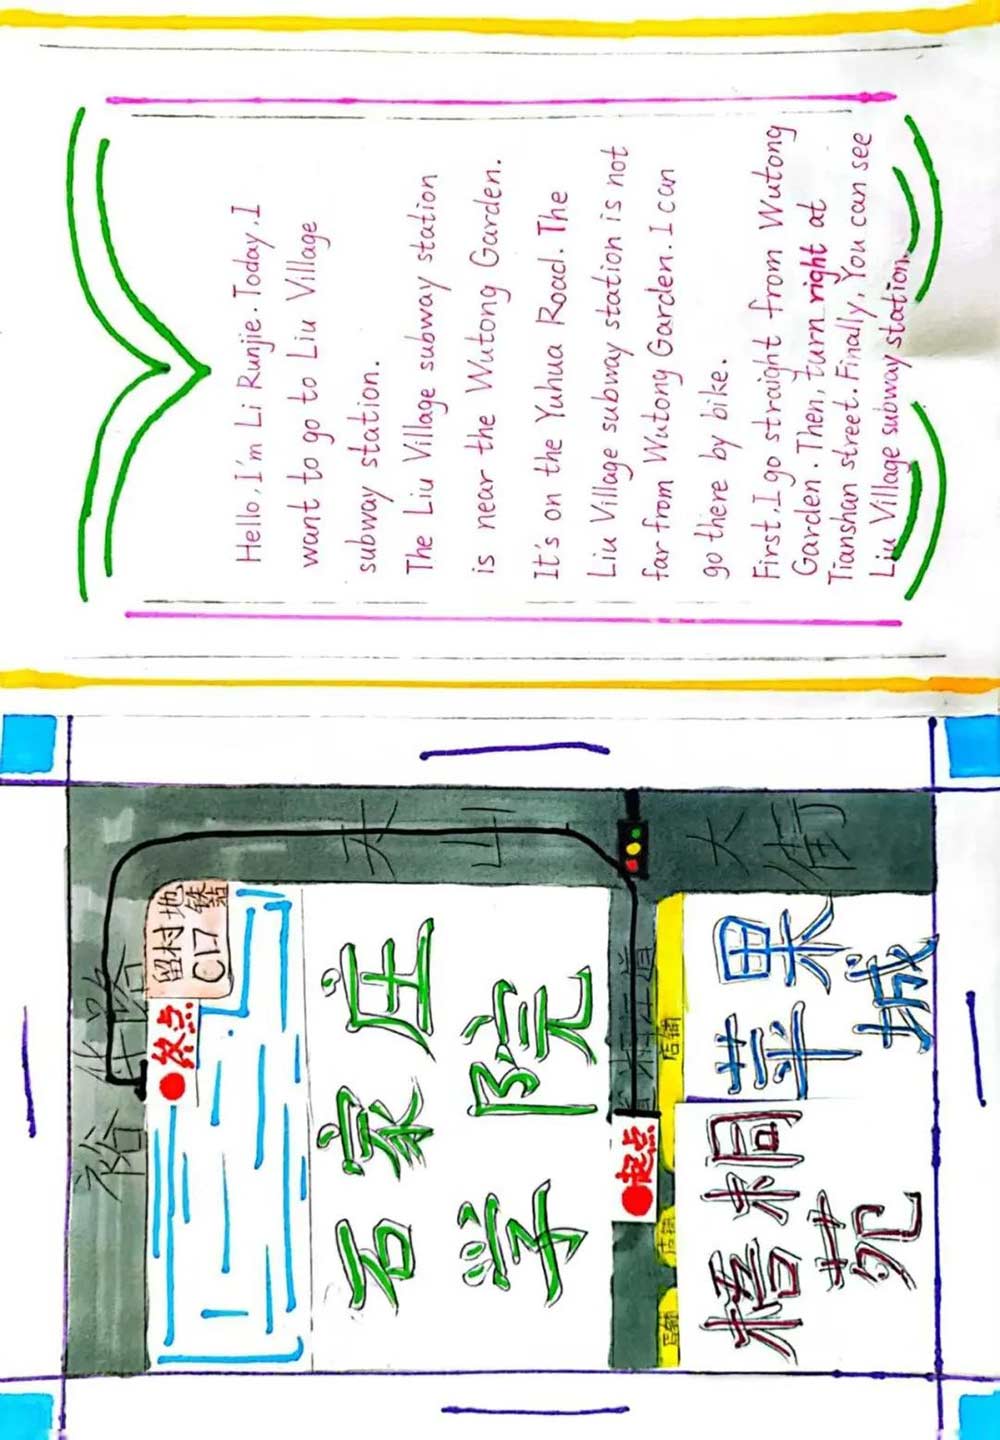 裕华路
终点
留村地铁站
C口
石家庄
学院
天山大街
起点
店铺 店铺 店铺
梧桐
苑
苹果
城
Hello, I'm Li Runjie. Today, I
want to go to Liu Village
subway station.
The Liu Village subway station
is near the Wutong Garden.
It's on the Yuhua Road. The
Liu Village subway station is not
far from Wutong Garden. I can
go there by bike.
First, I go straight from Wutong
Garden. Then, turn right at
Tianshan street. Finally, You can see
Liu Village subway station.